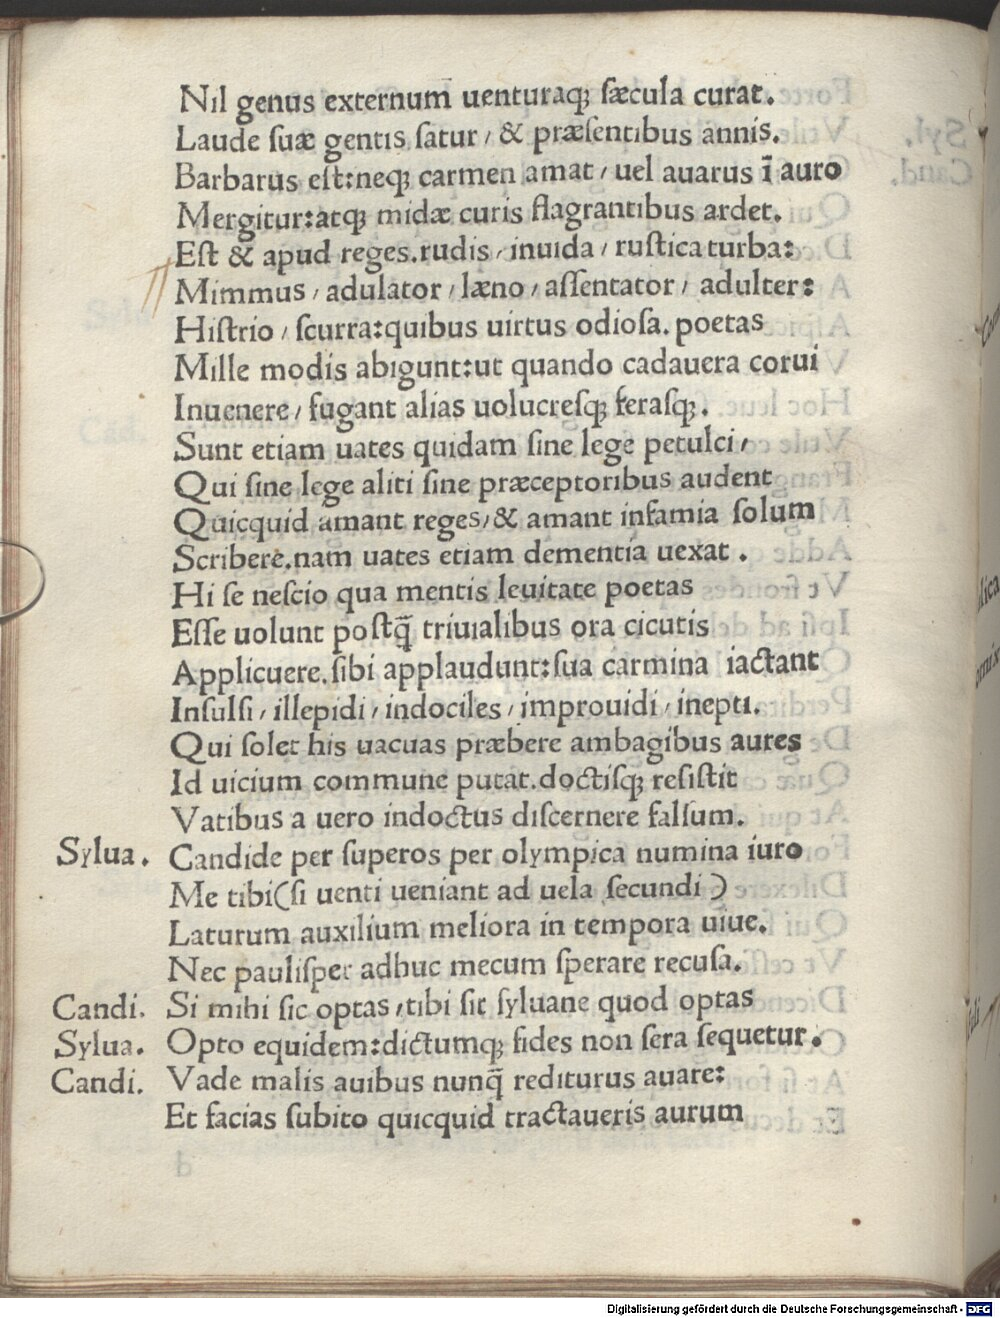 Nil genus externum uenturaq; ſæcula curat.
Laude ſuæ gentis ſatur / & præſentibus annis.
Barbarus eſt:neq; carmen amat / uel auarus ī auro
Mergitur:atq; midæ curis flagrantibus ardet.
Eſt & apud reges.rudis / inuida / ruſtica turba:
Mimmus / adulator / læno / aſſentator / adulter:
Hiſtrio / ſcurra:quibus uirtus odioſa. poetas
Mille modis abigunt:ut quando cadauera corui
Inuenere / fugant alias uolucreſq; feraſq;.
Sunt etiam uates quidam ſine lege petulci /
Qui ſine lege aliti ſine præceptoribus audent
Quicquid amant reges / & amant infamia ſolum
Scribere.nam uates etiam dementia uexat .
Hi ſe neſcio qua mentis leuitate poetas
Eſſe uolunt poſtq̄ triuialibus ora cicutis
Applicuere.ſibi applaudunt:ſua carmina iactant
Inſulſi / illepidi / indociles / improuidi / inepti.
Qui ſolet his uacuas præbere ambagibus aures
Id uicium commune putat.doctiſq; reſiſtit
Vatibus a uero indoctus diſcernere falſum.
Sylua. Candide per ſuperos per olympica numina iuro
Me tibi(ſi uenti ueniant ad uela ſecundi )
Laturum auxilium meliora in tempora uiue.
Nec pauliſper adhuc mecum ſperare recuſa.
Candi. Si mihi ſic optas / tibi ſit ſyluane quod optas
Sylua. Opto equidem:dictumq; fides non ſera ſequetur.
Candi. Vade malis auibus nunq̄ rediturus auare:
Et facias ſubito quicquid tractaueris aurum
Digitalisierung gefördert durch die Deutsche Forschungsgemeinschaft - DFG